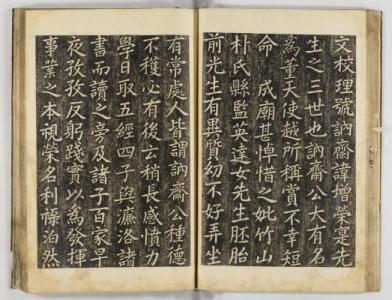 文校理號訥齋諱增榮寔先
生之三世也訥齋公大有名
爲董天使越所稱賞不幸短
命 成廟甚悼惜之妣竹山
朴氏縣監英達女先生胚胎
前光生有異質幼不好弄坐
有常處人皆謂訥齋公種德
不穫必有後云稍長感憤力
學日取五經四子與濂洛諸
書而讀之旁及諸子百家早
夜孜孜反躬踐實以爲發揮
事業之本視榮名利祿泊然